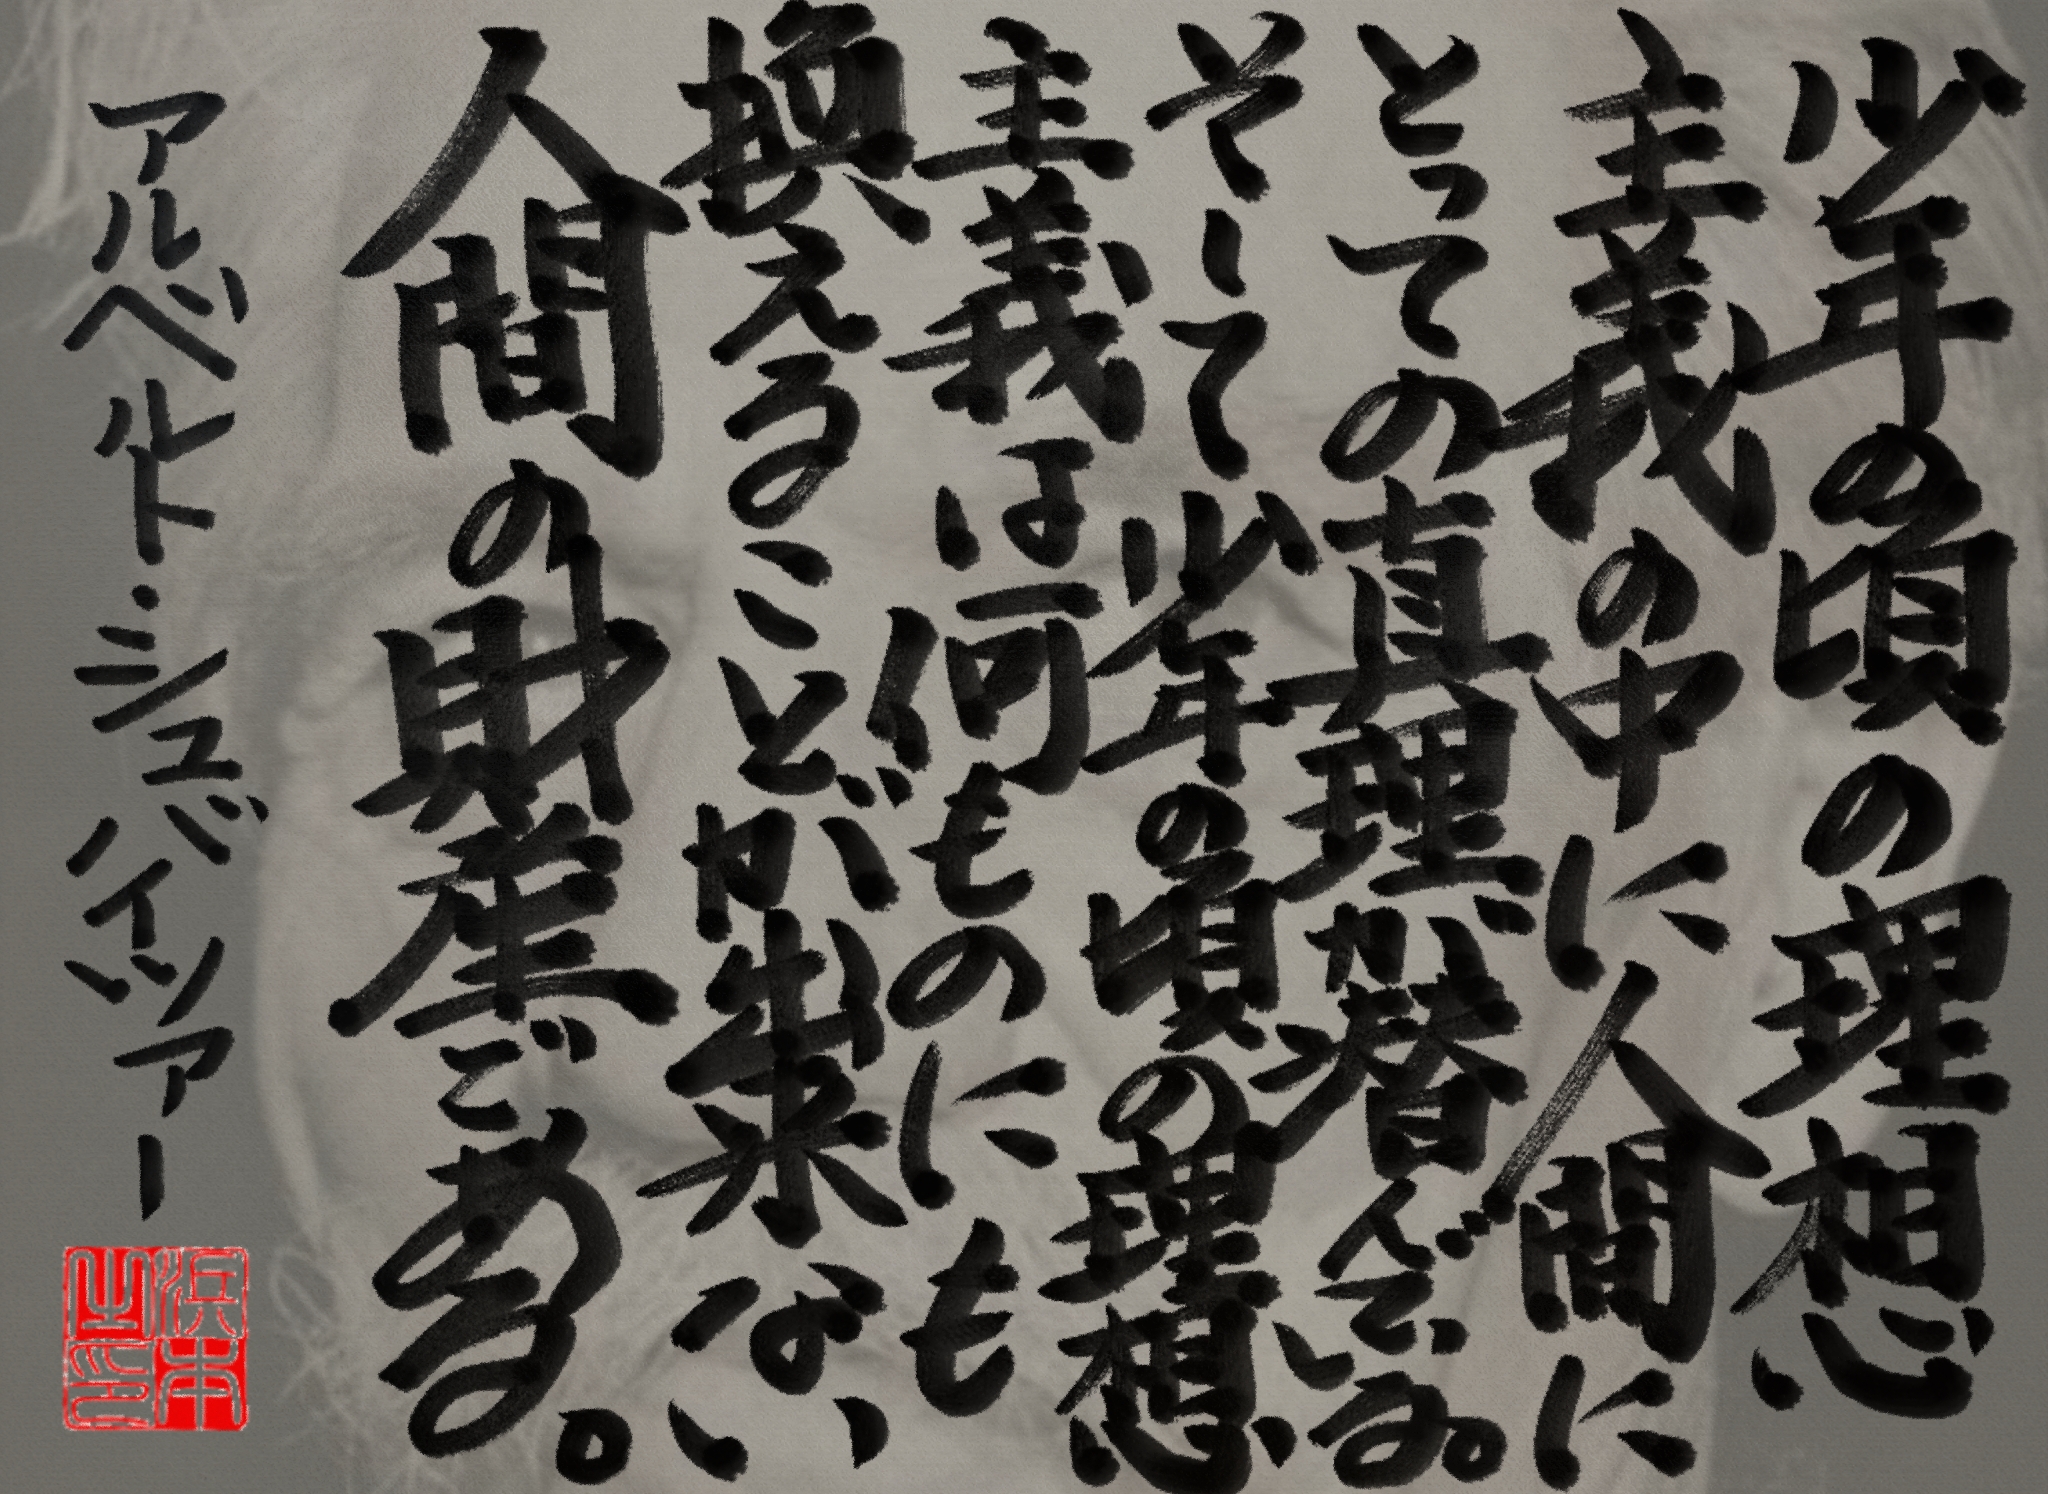 少年の頃の理想
主義の中に人間に
とっての真理が潜んでいる。
そして少年の頃の理想
主義は何ものにも
換えることが出来ない
人間の財産である。
アルベルト・シュバイツァー
浜本之印